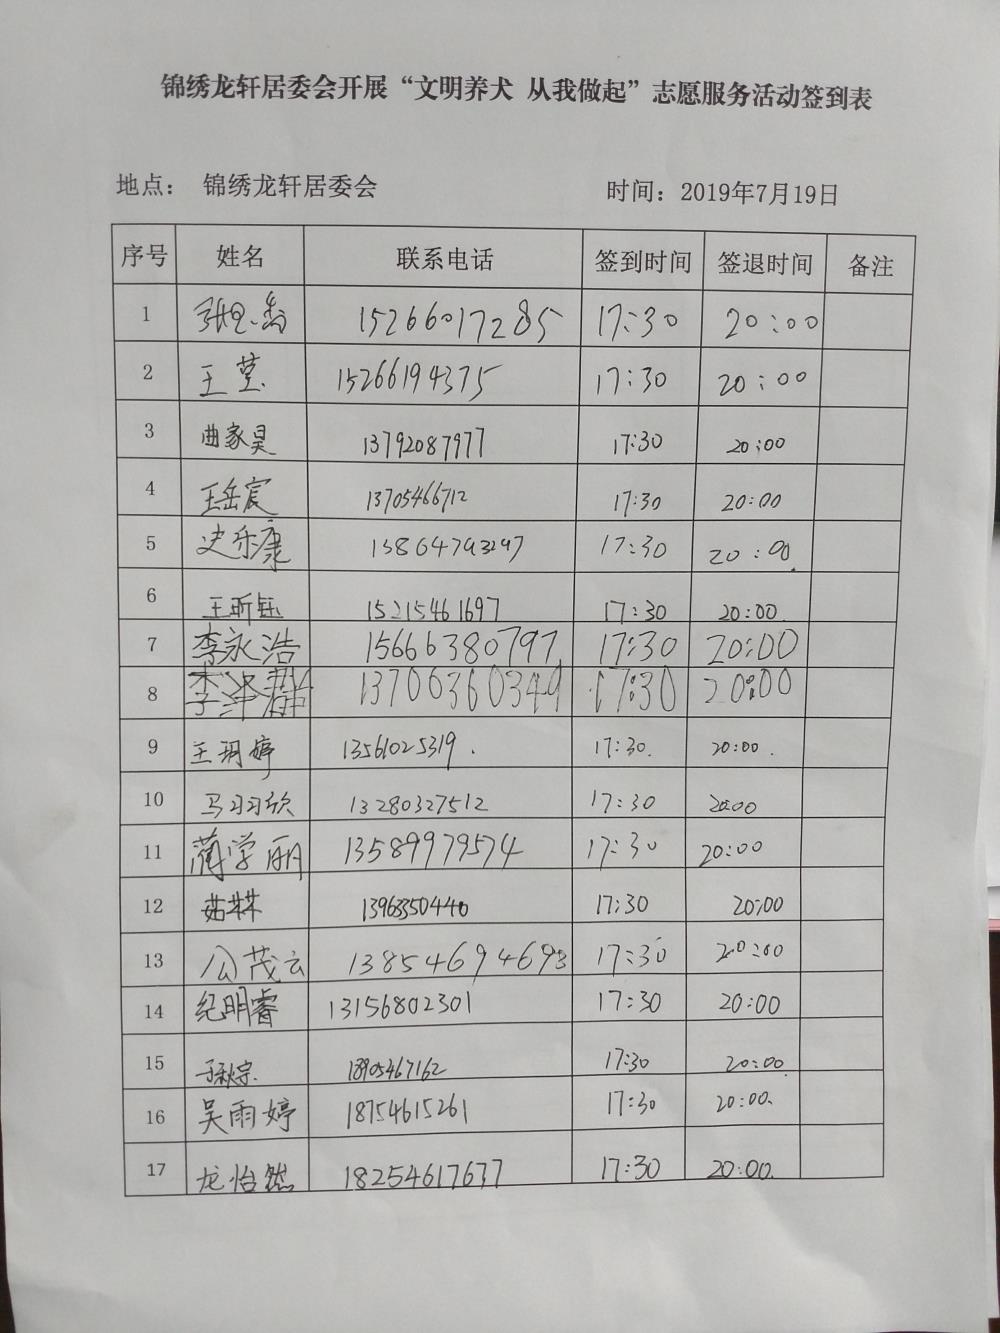 锦绣龙轩居委会开展“文明养犬 从我做起”志愿服务活动签到表
地点： 锦绣龙轩居委会 时间：2019年7月19日
序号 姓名 联系电话 签到时间 签退时间 备注
1 15266017285 17:30 20:00
2 王莹 15266194375 17:30 20:00
3 曲家昊 13792087977 17:30 20:00
4 王岳宸 13705466712 17:30 20:00
5 史乐康 13864793297 17:30 20:00.
6 王昕钰 15215461697 17:30 20:00.
7 李永浩 15666380797 17:30 20:00
8 13706360349 17:30 20:00
9 王玥婷 13561025319. 17:30. 20:00.
10 马习习欣 13280327512 17:30 20:00
11 蔺学丽 13589979574 17:30 20:00
12 茹林 13963350440 17:30 20:00
13 公茂云 13854694693 17:30 20:00
14 纪明睿 13156802301 17:30 20:00
15 于秋宗 18905467162 17:30 20:00.
16 吴雨婷 18754615261 17:30 20:00.
17 龙怡然 18254617677 17:30 20:00.